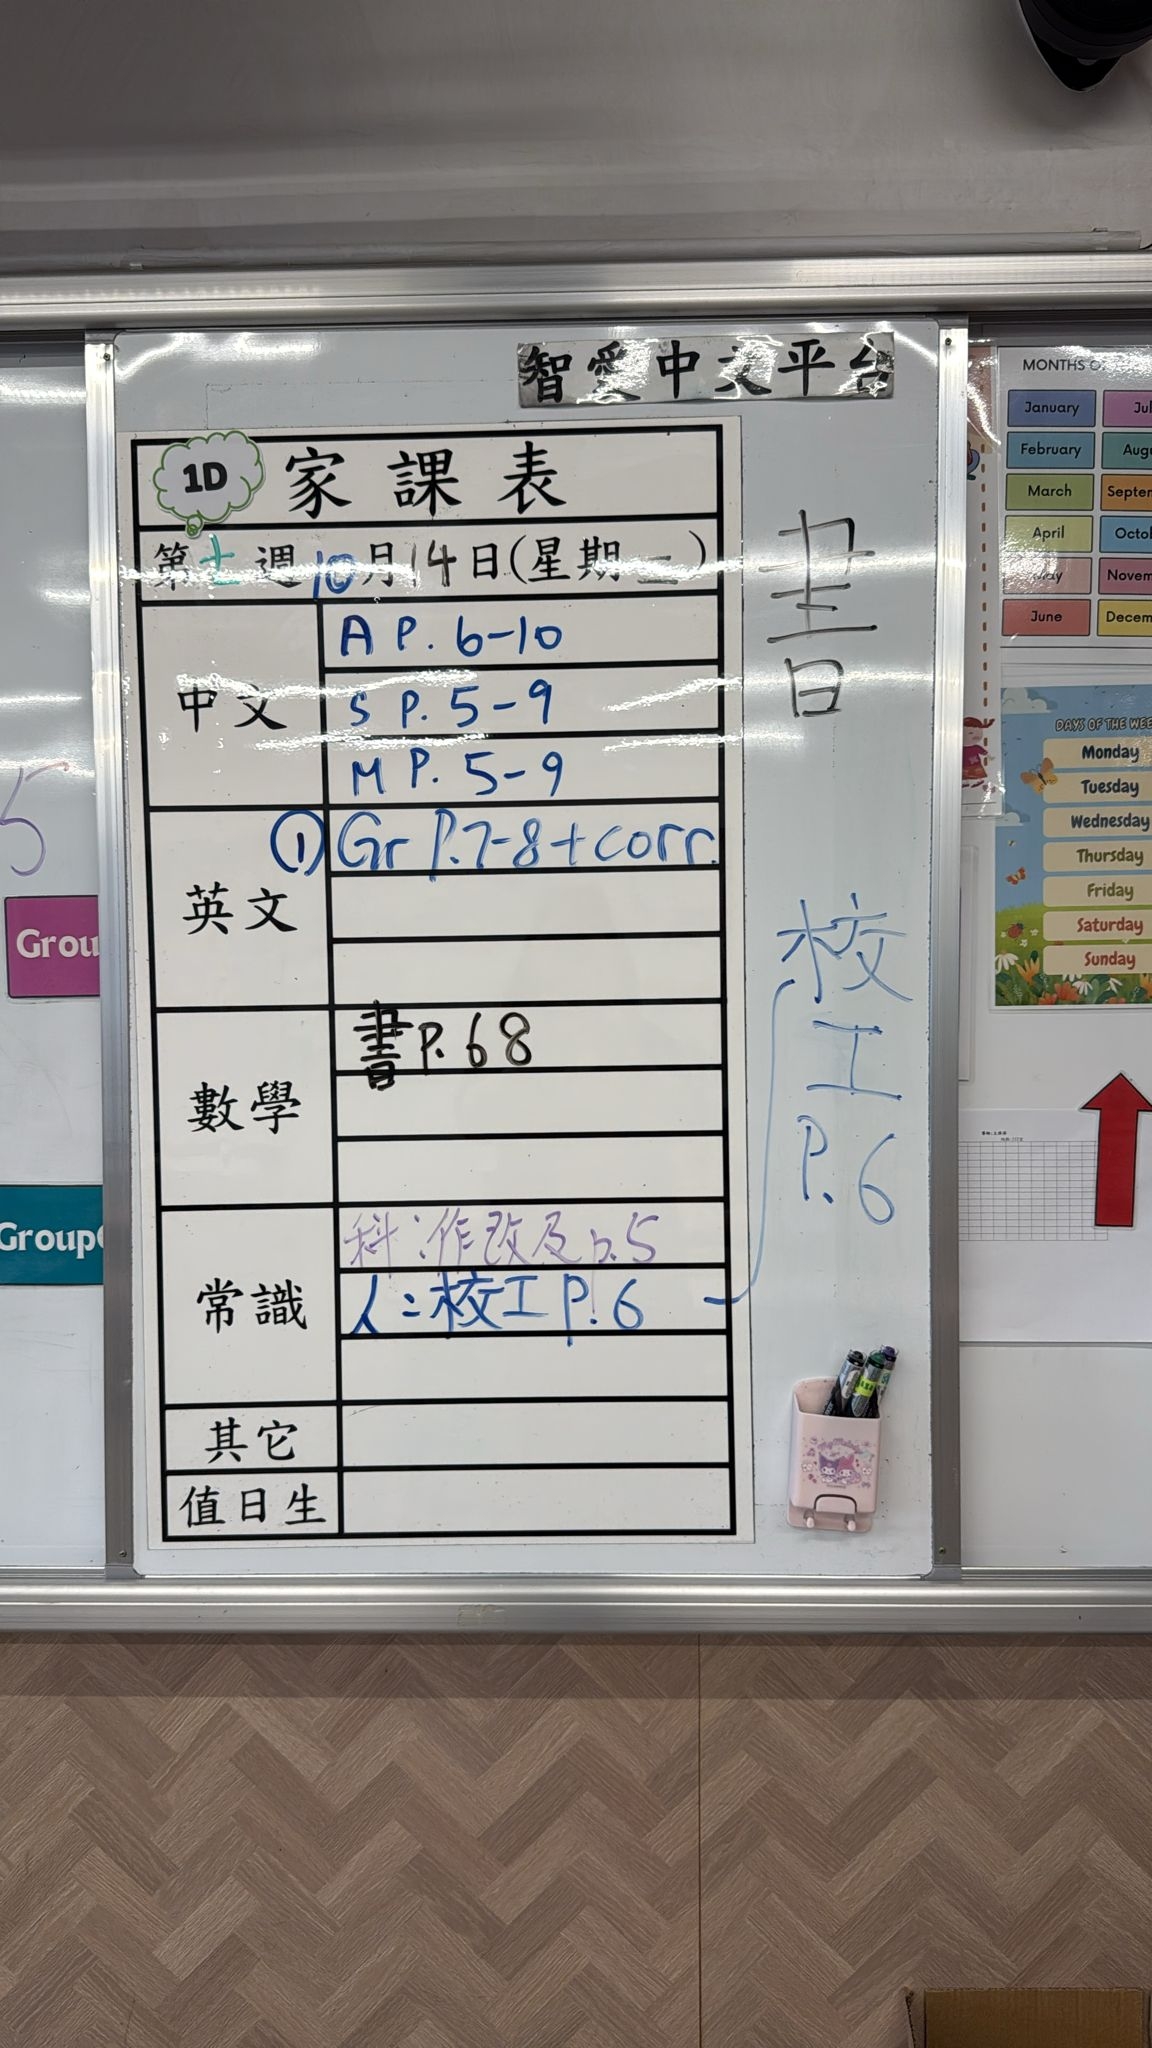 智愛中文平台
1D 家課表
第七週10月14日(星期二)
中文
A P. 6-10
S P. 5-9
M P. 5-9
英文
① Gr P.7-8+corr.
數學
書P.68
常識
科:作改及p.5
人:校工P.6
其它
值日生
書
校工P.6
5
Grou
Group
MONTHS O
January
February
March
April
May
June
Jul
Augu
Septem
Octo
Novem
Decem
DAYS OF THE WEE
Monday
Tuesday
Wednesday
Thursday
Friday
Saturday
Sunday